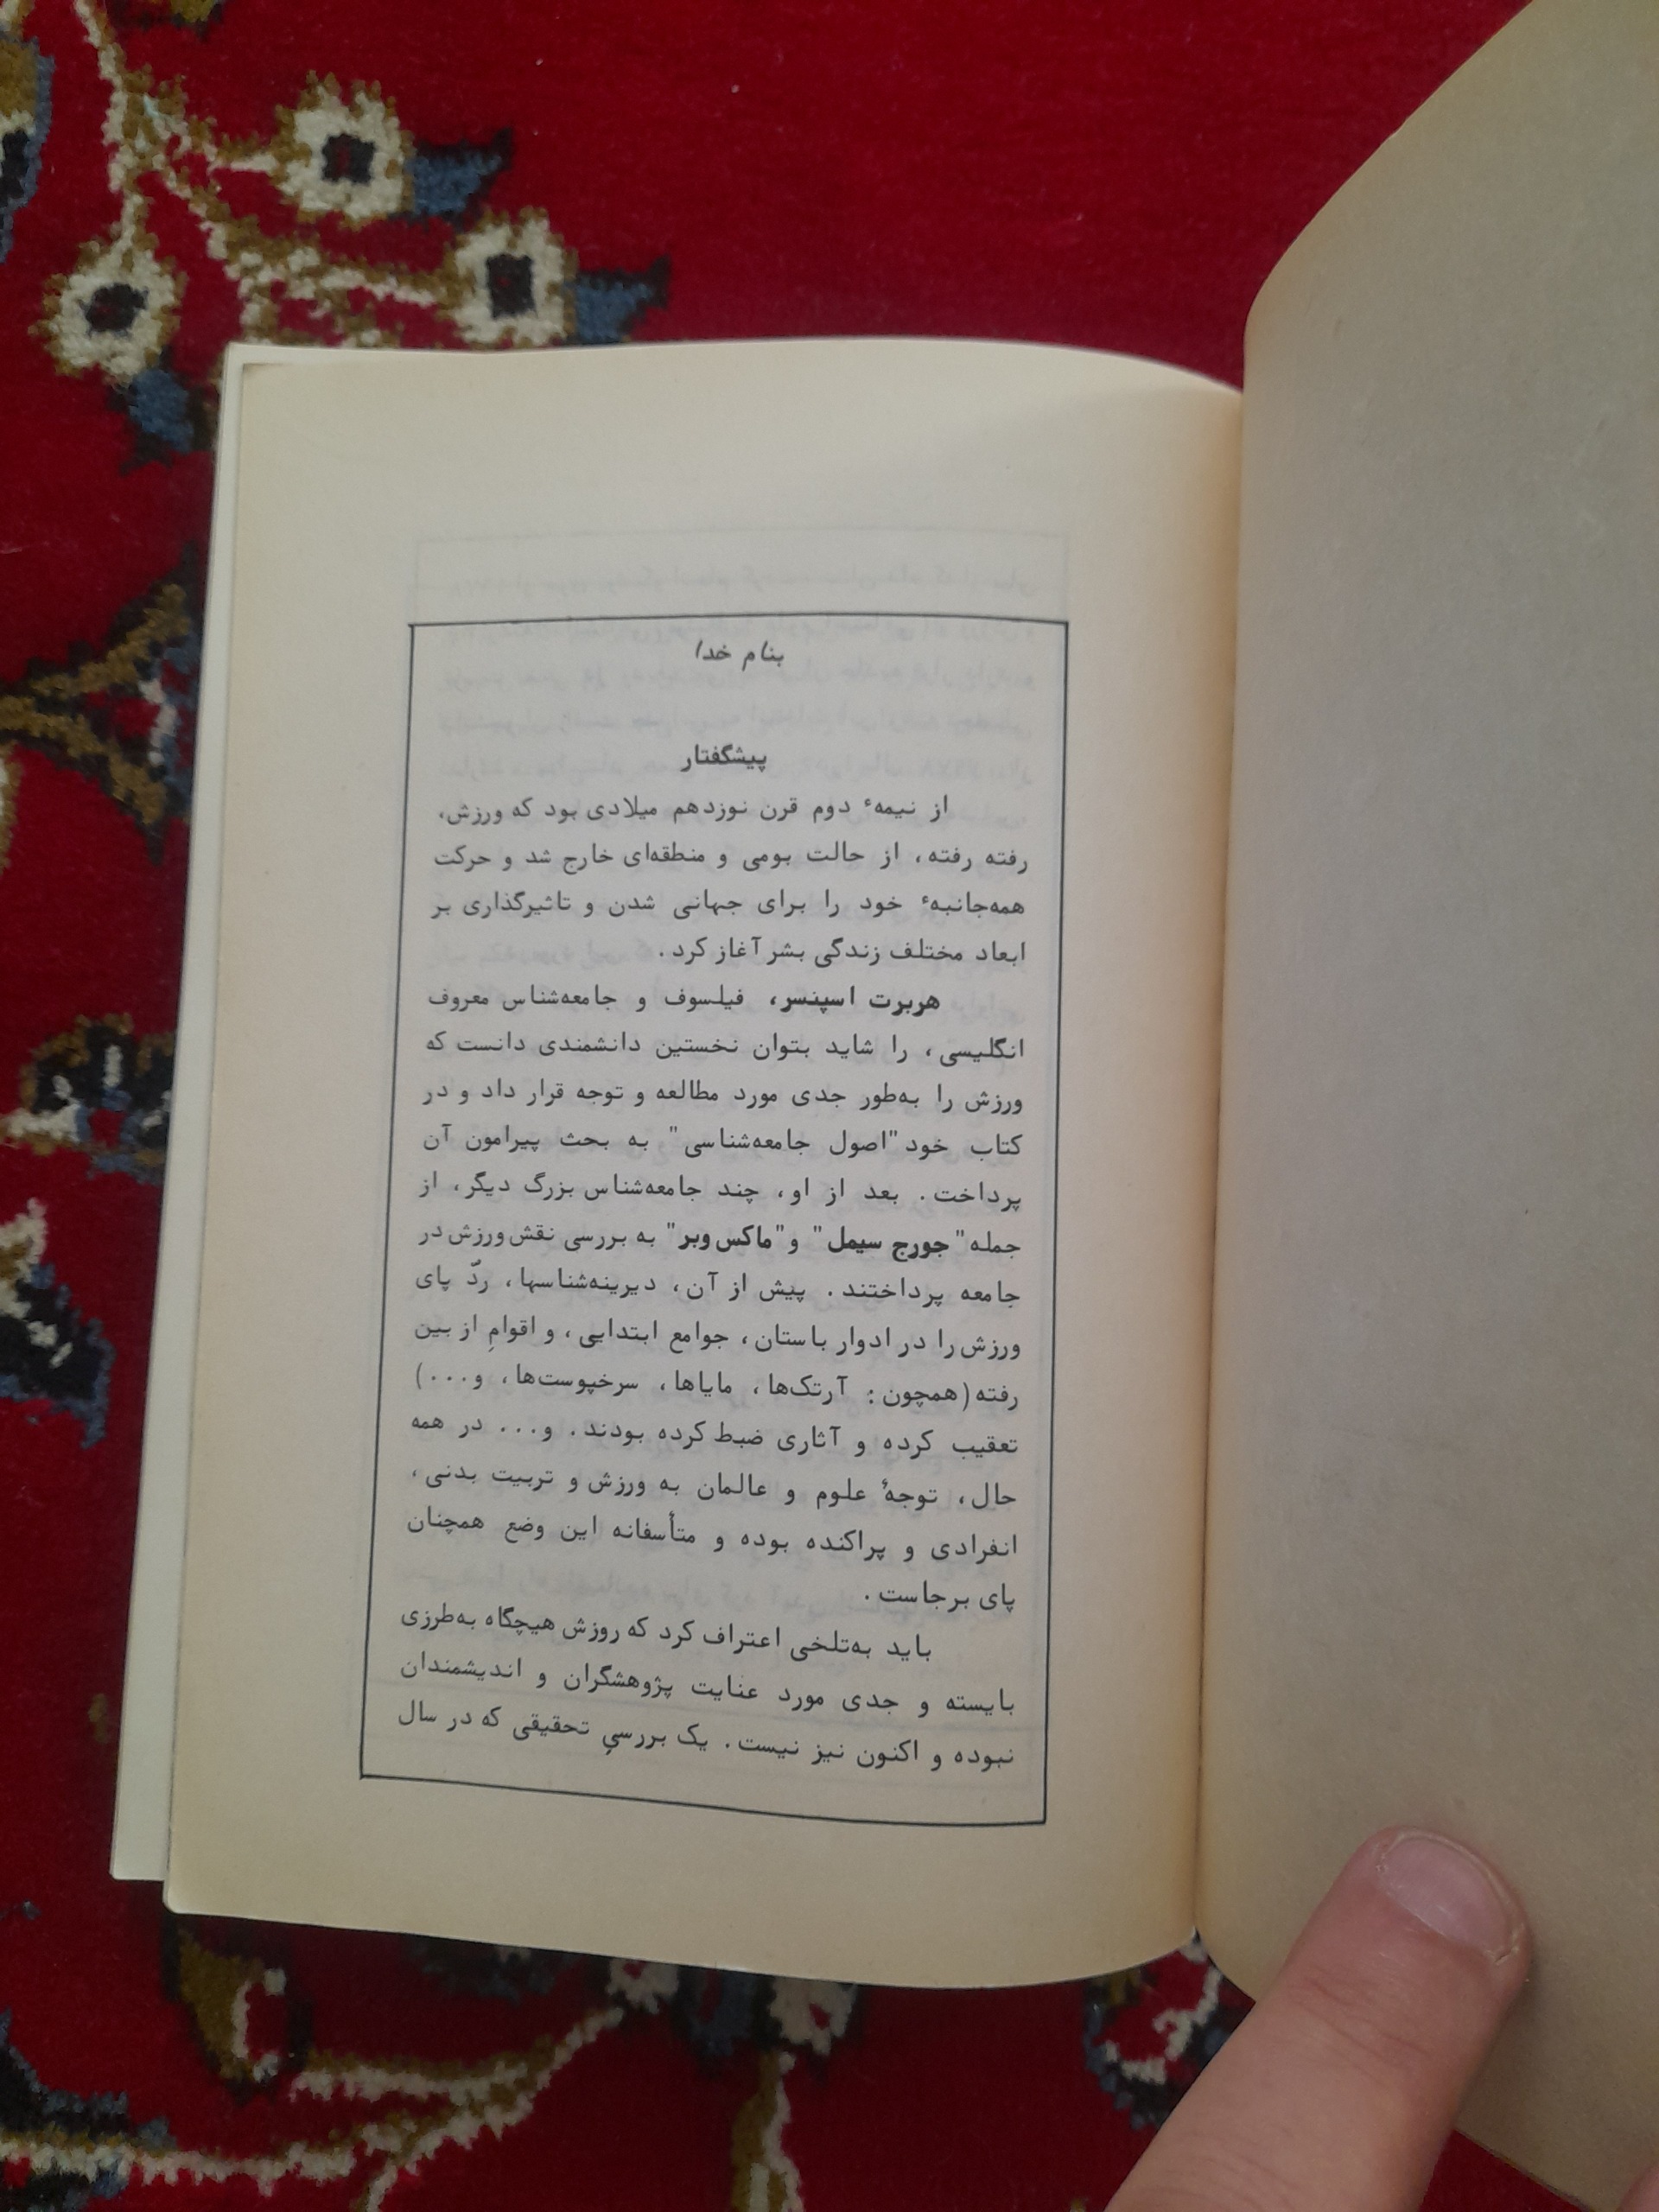 بنام خدا
پیشگفتار
از نیمهٴ دوم قرن نوزدهم میلادی بود که ورزش،
رفته رفته، از حالت بومی و منطقه‌ای خارج شد و حرکت
همه‌جانبهٴ خود را برای جهانی شدن و تاثیرگذاری بر
ابعاد مختلف زندگی بشر آغاز کرد.
هربرت اسپنسر، فیلسوف و جامعه‌شناس معروف
انگلیسی، را شاید بتوان نخستین دانشمندی دانست که
ورزش را به‌طور جدی مورد مطالعه و توجه قرار داد و در
کتاب خود "اصول جامعه‌شناسی" به بحث پیرامون آن
پرداخت. بعد از او، چند جامعه‌شناس بزرگ دیگر، از
جمله "جورج سیمل" و "ماکس وبر" به بررسی نقش ورزش در
جامعه پرداختند. پیش از آن، دیرینه‌شناسها، ردّ پای
ورزش را در ادوار باستان، جوامع ابتدایی، و اقوامِ از بین
رفته (همچون: آرتک‌ها، مایاها، سرخپوست‌ها، و...)
تعقیب کرده و آثاری ضبط کرده بودند. و... در همه
حال، توجهٔ علوم و عالمان به ورزش و تربیت بدنی،
انفرادی و پراکنده بوده و متأسفانه این وضع همچنان
پای برجاست.
باید به‌تلخی اعتراف کرد که روزش هیچگاه به‌طرزی
بایسته و جدی مورد عنایت پژوهشگران و اندیشمندان
نبوده و اکنون نیز نیست. یک بررسیِ تحقیقی که در سال